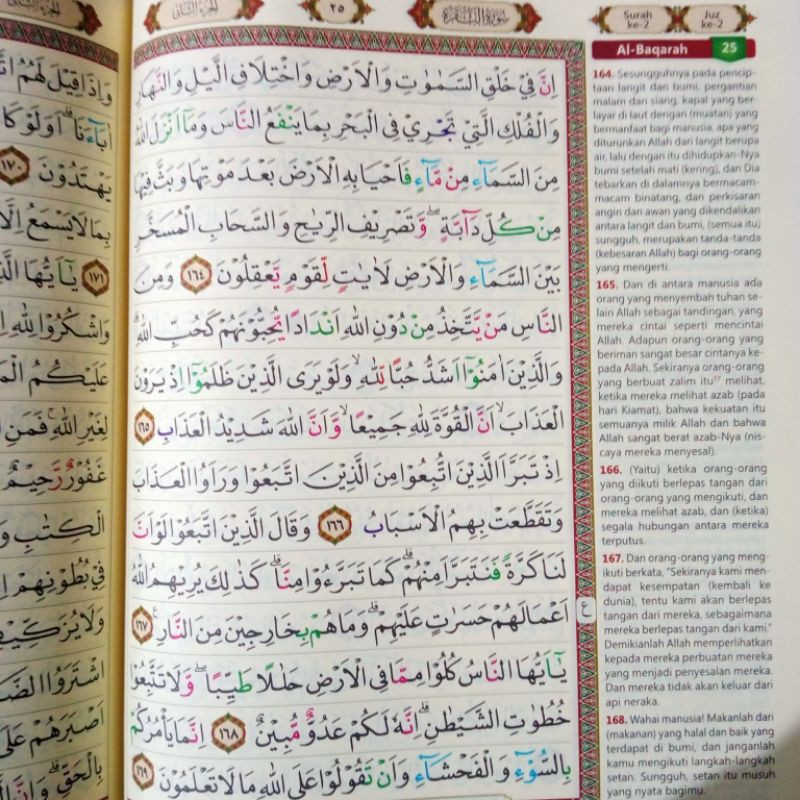 ٢٥
سورة البقرة
Surah
ke-2
Juz
ke-2
Al-Baqarah 25
اِنَّ فِيْ خَلْقِ السَّمٰوٰتِ وَالْاَرْضِ وَاخْتِلَافِ الَّيْلِ وَالنَّهَارِ
وَالْفُلْكِ الَّتِيْ تَجْرِيْ فِى الْبَحْرِ بِمَا يَنْفَعُ النَّاسَ وَمَآ اَنْزَلَ اللّٰهُ
مِنَ السَّمَاۤءِ مِنْ مَّاۤءٍ فَاَحْيَا بِهِ الْاَرْضَ بَعْدَ مَوْتِهَا وَبَثَّ فِيْهَا
مِنْ كُلِّ دَاۤبَّةٍ ۖ وَّتَصْرِيْفِ الرِّيٰحِ وَالسَّحَابِ الْمُسَخَّرِ
بَيْنَ السَّمَاۤءِ وَالْاَرْضِ لَاٰيٰتٍ لِّقَوْمٍ يَّعْقِلُوْنَ ١٦٤ وَمِنَ
النَّاسِ مَنْ يَّتَّخِذُ مِنْ دُوْنِ اللّٰهِ اَنْدَادًا يُّحِبُّوْنَهُمْ كَحُبِّ اللّٰهِ ۗ
وَالَّذِيْنَ اٰمَنُوْٓا اَشَدُّ حُبًّا لِّلّٰهِ ۙ وَلَوْ يَرَى الَّذِيْنَ ظَلَمُوْٓا اِذْ يَرَوْنَ
الْعَذَابَۙ اَنَّ الْقُوَّةَ لِلّٰهِ جَمِيْعًا ۙ وَّاَنَّ اللّٰهَ شَدِيْدُ الْعَذَابِ ١٦٥
اِذْ تَبَرَّاَ الَّذِيْنَ اتُّبِعُوْا مِنَ الَّذِيْنَ اتَّبَعُوْا وَرَاَوُا الْعَذَابَ
وَتَقَطَّعَتْ بِهِمُ الْاَسْبَابُ ١٦٦ وَقَالَ الَّذِيْنَ اتَّبَعُوْا لَوْ اَنَّ
لَنَا كَرَّةً فَنَتَبَرَّاَ مِنْهُمْ ۗ كَمَا تَبَرَّءُوْا مِنَّا ۗ كَذٰلِكَ يُرِيْهِمُ اللّٰهُ
اَعْمَالَهُمْ حَسَرٰتٍ عَلَيْهِمْ ۗ وَمَا هُمْ بِخَارِجِيْنَ مِنَ النَّارِ ࣖ ١٦٧
يٰٓاَيُّهَا النَّاسُ كُلُوْا مِمَّا فِى الْاَرْضِ حَلٰلًا طَيِّبًا ۖ وَّلَا تَتَّبِعُوْا
خُطُوٰتِ الشَّيْطٰنِۗ اِنَّهٗ لَكُمْ عَدُوٌّ مُّبِيْنٌ ١٦٨ اِنَّمَا يَأْمُرُكُمْ
بِالسُّوْۤءِ وَالْفَحْشَاۤءِ وَاَنْ تَقُوْلُوْا عَلَى اللّٰهِ مَا لَا تَعْلَمُوْنَ ١٦٩
ع
164. Sesungguhnya pada pencip-
taan langit dan bumi, pergantian
malam dan siang, kapal yang ber-
layar di laut dengan (muatan) yang
bermanfaat bagi manusia, apa yang
diturunkan Allah dari langit berupa
air, lalu dengan itu dihidupkan-Nya
bumi setelah mati (kering), dan Dia
tebarkan di dalamnya bermacam-
macam binatang, dan perkisaran
angin dan awan yang dikendalikan
antara langit dan bumi, (semua itu)
sungguh, merupakan tanda-tanda
(kebesaran Allah) bagi orang-orang
yang mengerti.
165. Dan di antara manusia ada
orang yang menyembah tuhan se-
lain Allah sebagai tandingan, yang
mereka cintai seperti mencintai
Allah. Adapun orang-orang yang
beriman sangat besar cintanya ke-
pada Allah. Sekiranya orang-orang
yang berbuat zalim itu⁵⁷ melihat,
ketika mereka melihat azab (pada
hari Kiamat), bahwa kekuatan itu
semuanya milik Allah dan bahwa
Allah sangat berat azab-Nya (nis-
caya mereka menyesal).
166. (Yaitu) ketika orang-orang
yang diikuti berlepas tangan dari
orang-orang yang mengikuti, dan
mereka melihat azab, dan (ketika)
segala hubungan antara mereka
terputus.
167. Dan orang-orang yang meng-
ikuti berkata, "Sekiranya kami men-
dapat kesempatan (kembali ke
dunia), tentu kami akan berlepas
tangan dari mereka, sebagaimana
mereka berlepas tangan dari kami."
Demikianlah Allah memperlihatkan
kepada mereka perbuatan mereka
yang menjadi penyesalan mereka.
Dan mereka tidak akan keluar dari
api neraka.
168. Wahai manusia! Makanlah dari
(makanan) yang halal dan baik yang
terdapat di bumi, dan janganlah
kamu mengikuti langkah-langkah
setan. Sungguh, setan itu musuh
yang nyata bagimu.
وَاِذَا قِيْلَ لَهُمُ
اٰبَاۤءَنَا ۗ اَوَلَوْ كَا
يَهْتَدُوْنَ ١٧٠
بِمَا لَا يَسْمَعُ اِلَّا
١٧١ يٰٓاَيُّهَا
وَاشْكُرُوْا لِلّٰهِ
عَلَيْكُمُ
لِغَيْرِ اللّٰهِ ۚ فَمَنِ
غَفُوْرٌ رَّحِيْمٌ
الْكِتٰبِ
فِيْ بُطُوْنِهِمْ
وَلَا يُزَكِّيْهِمْ
اشْتَرَوُا
اَصْبَرَهُمْ عَلَى
بِالْحَقِّ ۗ وَاِنَّ